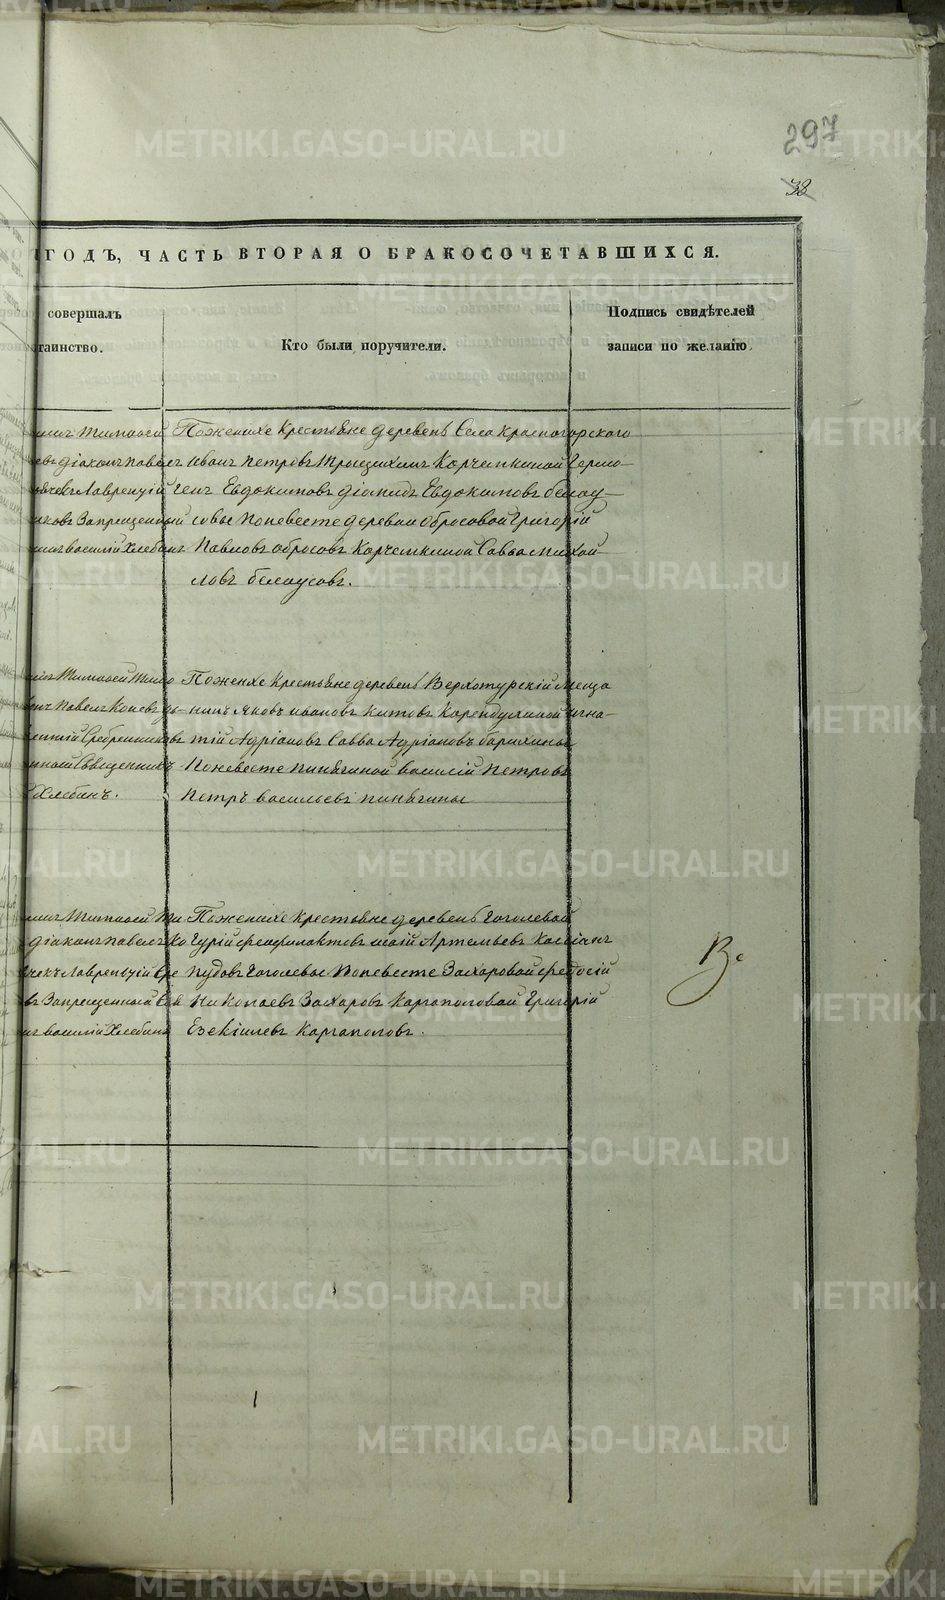 297
38
ГОДЪ, ЧАСТЬ ВТОРАЯ О БРАКОСОЧЕТАВШИХСЯ.
совершалъ
таинство.
Кто были поручители.
Подпись свидѣтелей
записи по желанію.
Тимоѳей
діаконъ Павелъ
Лаврентій
Запрещенный
василій Хлебинъ
Пожених‌е Крестьяне деревень Села Красногорского
иванъ Петровъ Трыщихинъ Корчемкиной Гермо-
генъ Евдокимовъ діомидъ Евдокимовъ белоу-
совы Поневесте деревни обросовой Григорій
Павловъ обросовъ Корчемкиной Савва Михай-
ловъ белоусовъ.
Тимоѳей Тимо
Павелъ Коневъ
Сребренниковъ
Священникъ
Хлебинъ.
Поженихе Крестьяне деревень Верхотурскій Меща
нинъ Яковъ ивановъ Китовъ Карендулиной игна-
тій Адріановъ Савва Адріановъ
Поневесте пинягиной василій Петровъ
Петръ васильевъ пинягины
Тимоѳей Ти
діаконъ павелъ Ко
Лаврентій Сре
въ Запрещенный Свя
василій Хлебинъ
Поженихе крестьяне деревень Гоголевой
Гурій феофилактовъ Артемьевъ Касьянъ
пудовъ Гоголевы Поневесте Захаровой федосій
Николаевъ Захаровъ Каргаполовой Григорій
Езекіилевъ Каргаполовъ.
METRIKI.GASO-URAL.RU